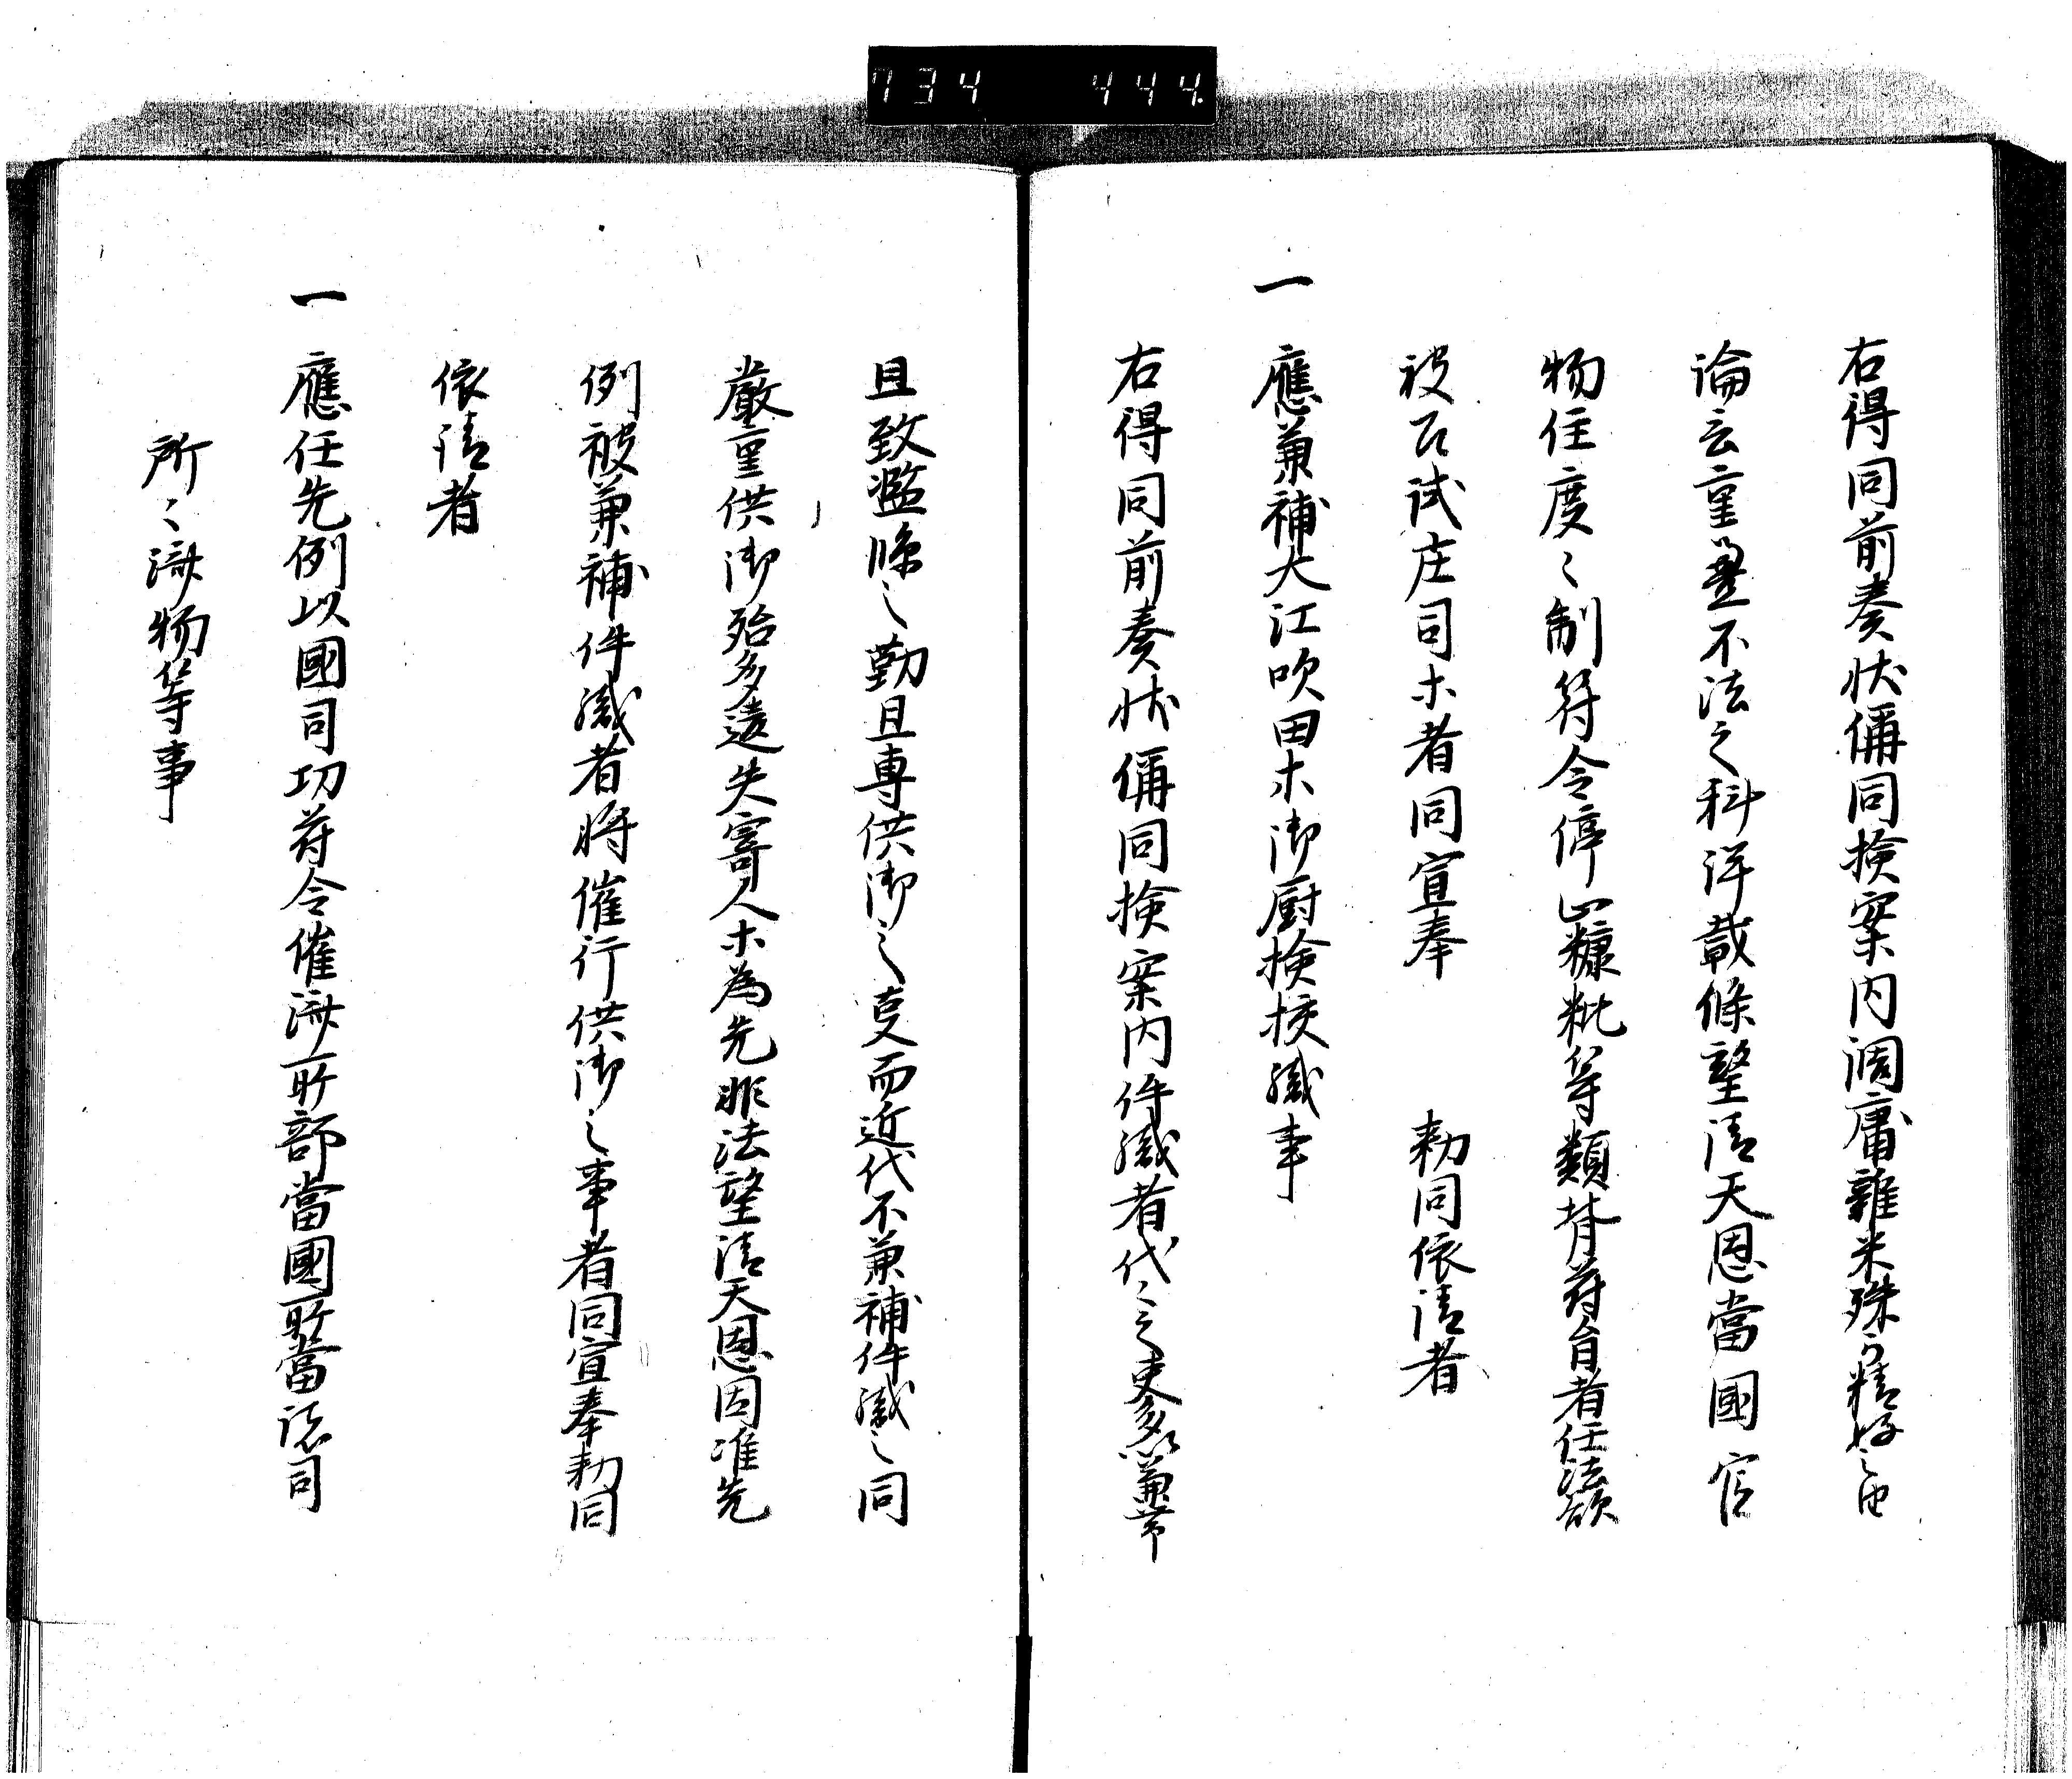 734 444
右得同前奏状偁同検案内調庸雑米殊可精好之由
論云重畳不法之科詳載條望請天恩當國官
物任度々制符令停止糠粃等類背符旨者任法
被召試庄司木者同宣奉 勅同依請者
一 應兼補大江吹田木御厨検校職事
右得同前奏状偁同検案内件職者代々之吏多以兼帯
且致濫悕之勤且専供御之吏而近代不兼補件職之同
厳重供御殆多遺失寄人木為先非法望請天恩因准先
例被兼補件職者将催行供御之事者同宣奉勅同
依請者
一 應任先例以國司切符令催済所部當國所當諸司
所々済物等事